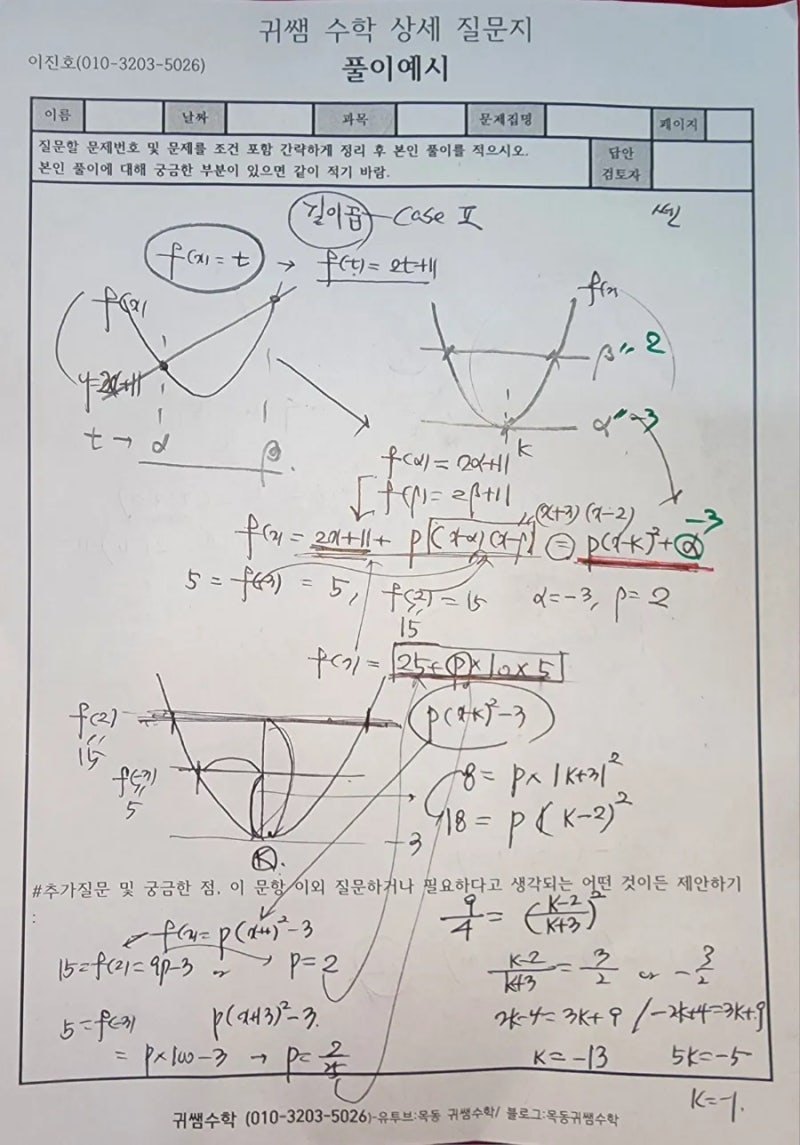 귀쌤 수학 상세 질문지
이진호(010-3203-5026)
풀이예시
이름 날짜 과목 문제집명 페이지
질문할 문제번호 및 문제를 조건 포함 간략하게 정리 후 본인 풀이를 적으시오.
본인 풀이에 대해 궁금한 부분이 있으면 같이 적기 바람.
답안
검토자
길이곱 - Case II
f(x) = t → f(t) = 2t+11
f(x)
f(x
y=2x+11
β = 2
α = -3
t → α β
k
f(α) = 2α+11
f(β) = 2β+11
(x+3)(x-2)
-3
f(x) = 2x+11 + p(x-α)(x-β) = p(x-k)²+α
5 = f(-3) = 5, f(2) = 15
15
α=-3, β=2
f(7) = 25+p×10×5
f(2)
15
p(x-k)²-3
f(-3)
5
8 = p×|k+3|²
18 = p(k-2)²
-3
k.
#추가질문 및 궁금한 점. 이 문항 이외 질문하거나 필요하다고 생각되는 어떤 것이든 제안하기
:
f(x) = p(x+1)²-3
9/4 = (k-2/k+3)²
15=f(2)=9p-3 → p=2
k-2/k+3 = 3/2 or -3/2
5=f(-3) p(x+13)²-3.
2k-4=3k+9 / -2k+4=3k+9
= p×100-3 → p=2/25
k=-13 5k=-5
k=-1.
귀쌤수학 (010-3203-5026)-유투브:목동 귀쌤수학/ 블로그:목동귀쌤수학